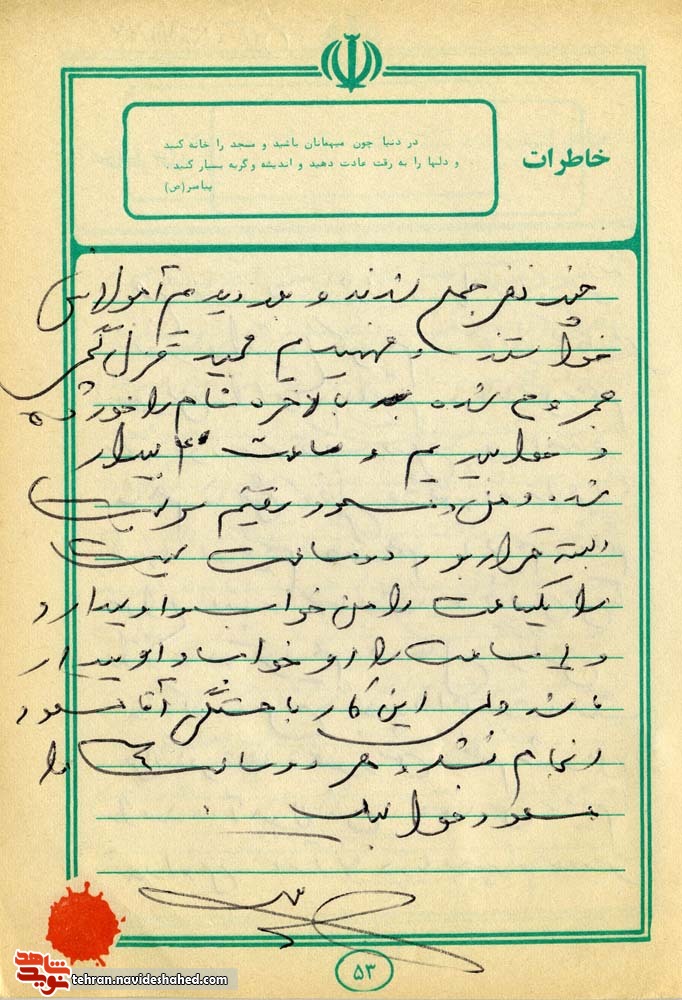 خاطرات
در دنیا چون میهمانان باشید و مسجد را خانه کنید
و دلها را به رقت عادت دهید و اندیشه و گریه بسیار کنید .
پیامبر(ص)
چند نفر جمع شدند و بعد دیدیم آمبولانس
خواستند و فهمیدیم مجید قزل
مجروح شده بالاخره شام را خورده
و خوابیدیم و ساعت ۴ بیدار
شدیم و من و مسعود رفتیم سر پست
البته قرار بود دو ساعت پست
را یکساعت را من خواب و او بیدار و
ساعت را او خواب و
باشد ولی این کار با خستگی آقا مسعود
انجام نشد و هر دو ساعت را
مسعود خوابید
۵۳
نوید شاهد
tehran.navideshahed.com